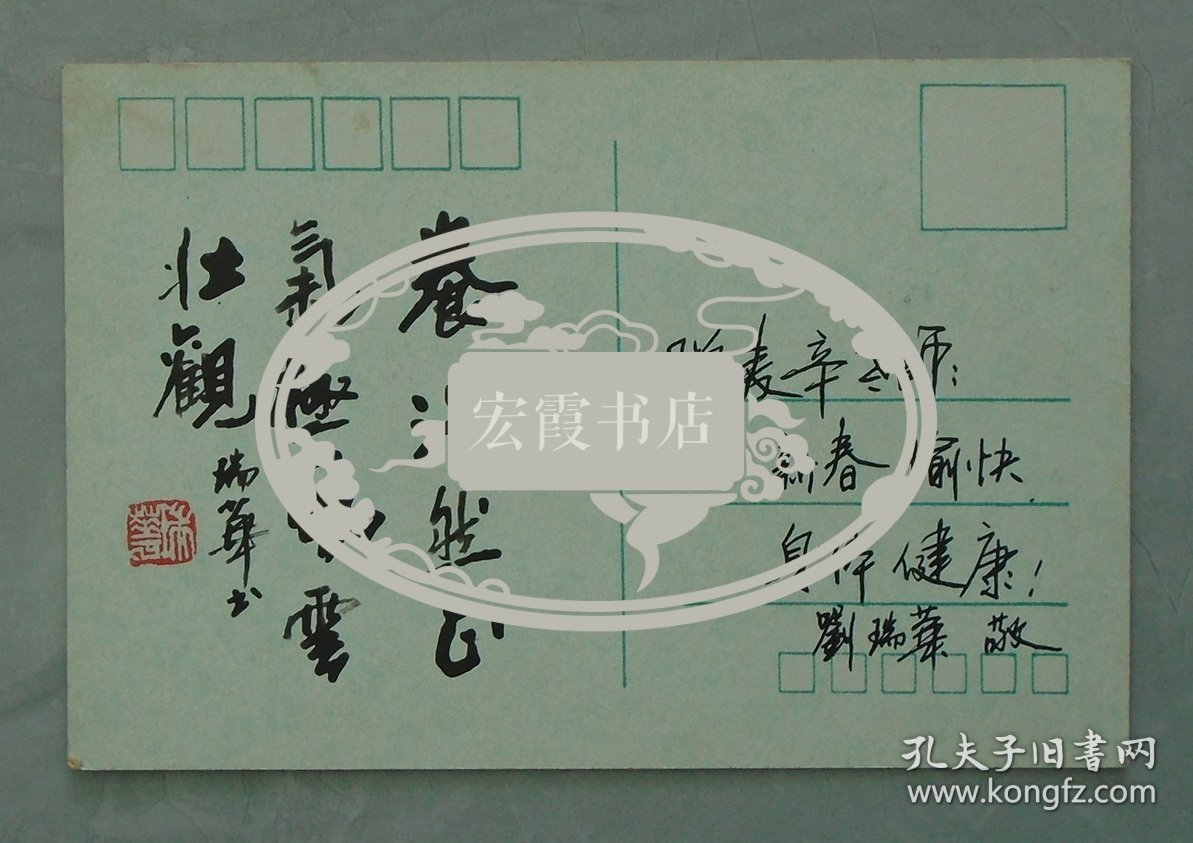 養浩然正
氣極風雲
壯觀
瑞華書
麦辛老师：
新春愉快
身体健康！
劉瑞華 敬
宏霞书店
孔夫子旧书网
www.kongfz.com